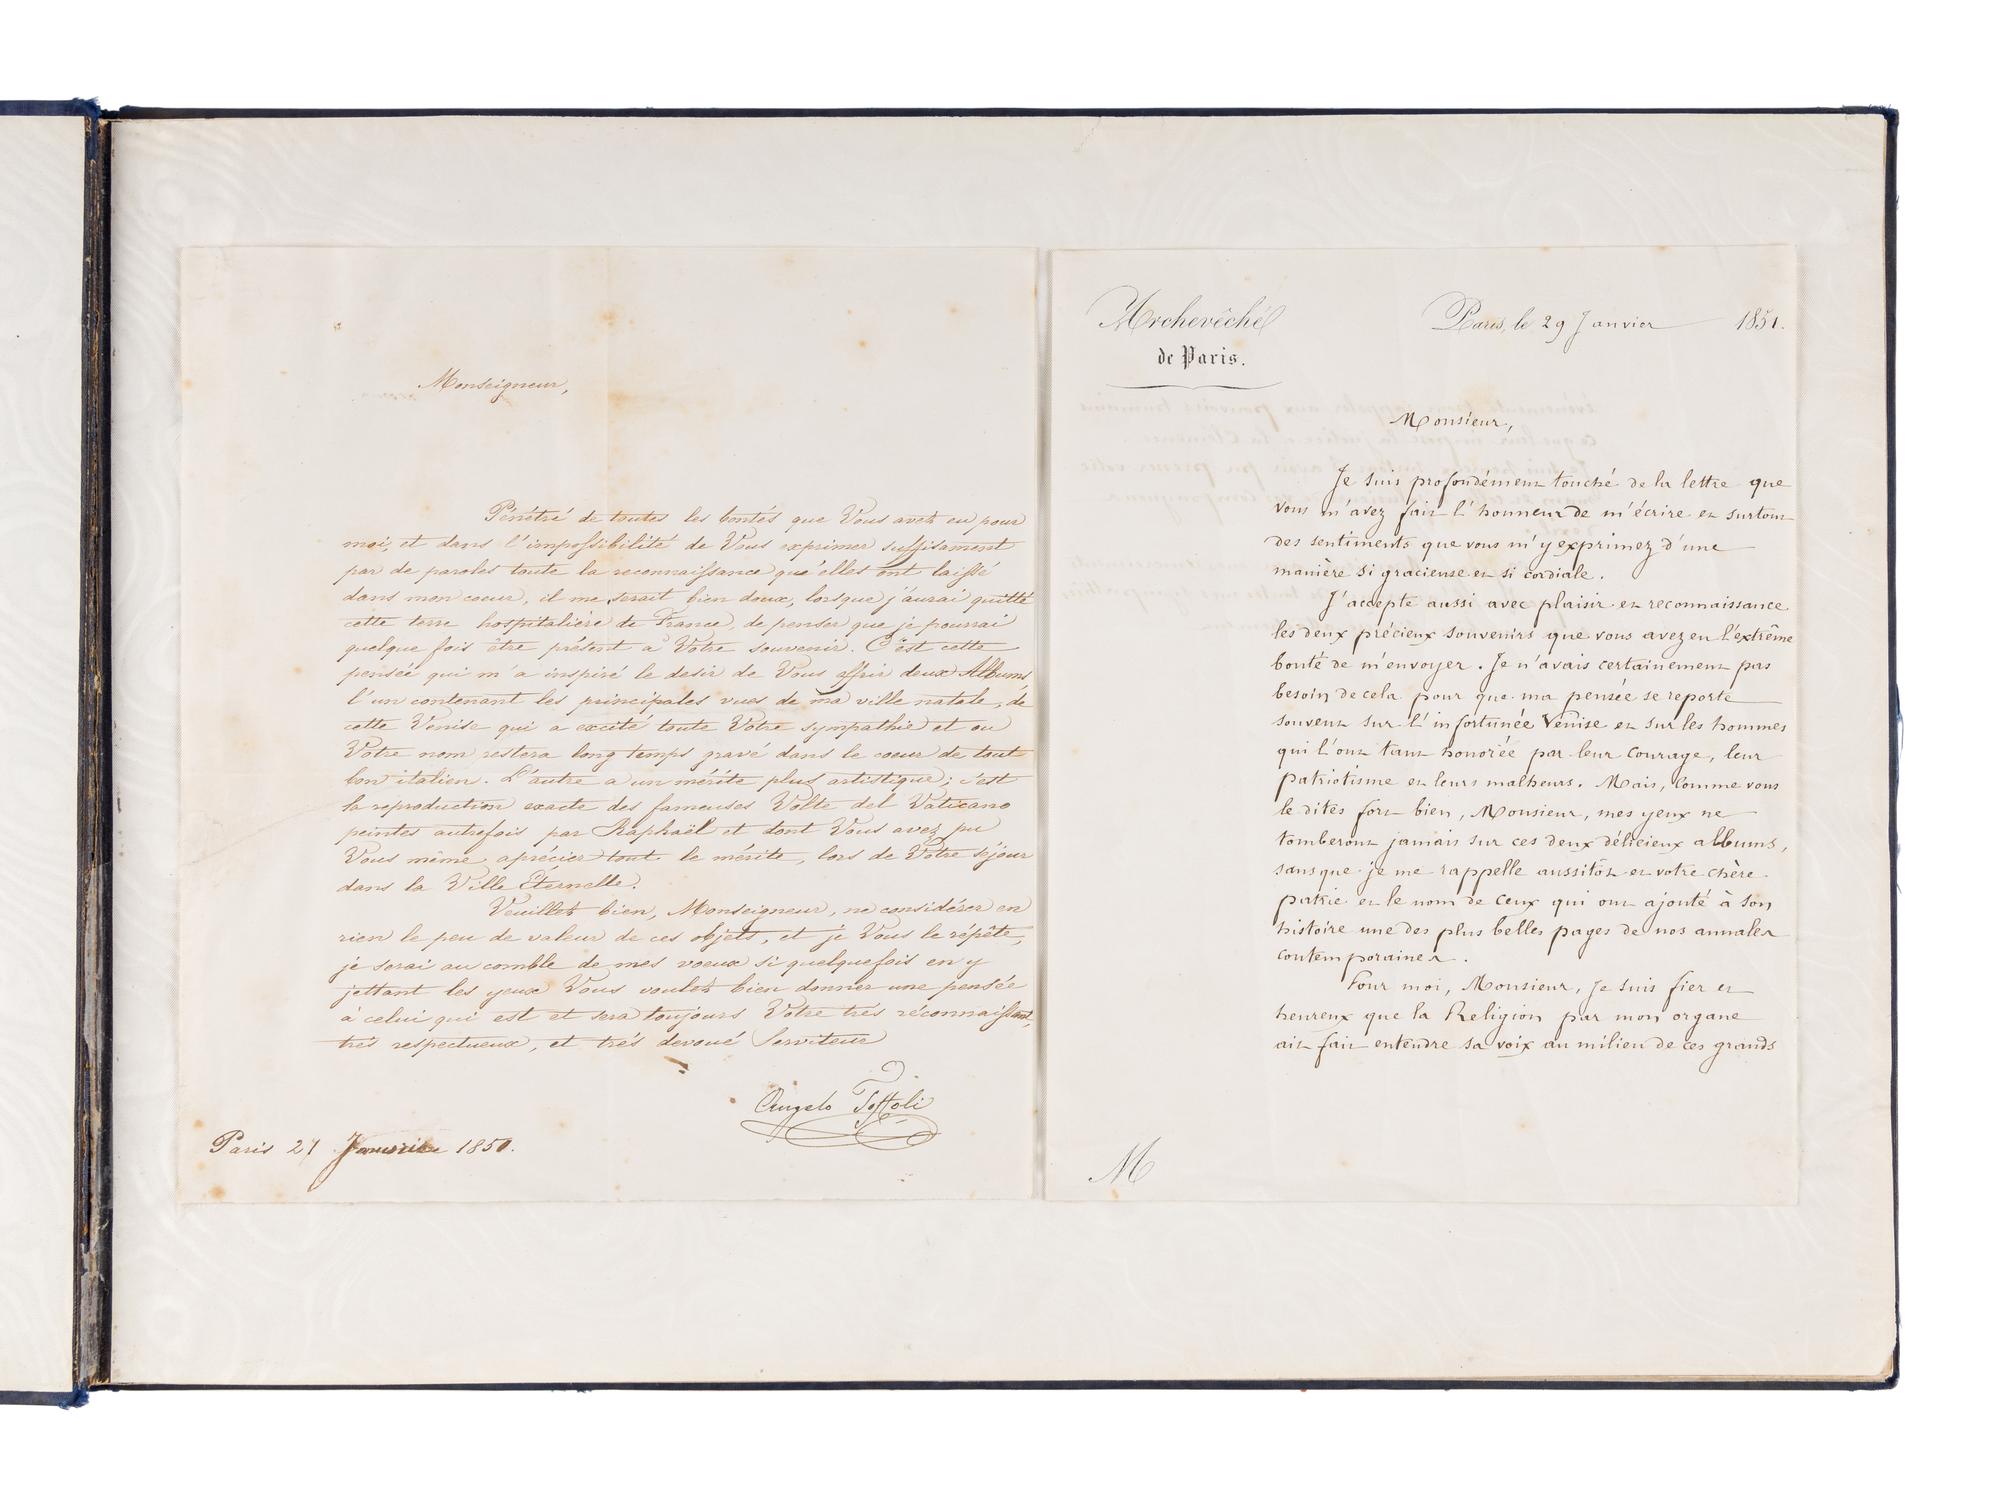 Monseigneur,
Pénétré de toutes les bontés que Vous avez eu pour
moi, et dans l'impossibilité de Vous exprimer suffisament
par de paroles toute la reconnaissance qu'elles ont laissé
dans mon coeur, il me serait bien doux, lorsque j'aurai quitté
cette terre hospitalière de France, de penser que je pourrai
quelque fois être présent à Votre souvenir. C'est cette
pensée qui m'a inspiré le desir de Vous offrir deux Albums
l'un contenant les principales vues de ma ville natale, de
cette Venise qui a excité toute Votre sympathie et ou
Votre nom restera long temps gravé dans le coeur de tout
bon italien. L'autre a un mérite plus artistique; c'est
la reproduction exacte des fameuses Volte del Vaticano
peintes autrefois par Raphaël et dont Vous avez pu
Vous même aprécier tout le mérite, lors de Votre séjour
dans la Ville Éternelle.
Veuillez bien, Monseigneur, ne considérer en
rien le peu de valeur de ces objets, et je Vous le répète,
je serai au comble de mes voeux si quelquefois en y
jettant les yeux Vous voulez bien donner une pensée
à celui qui est et sera toujours Votre très réconnaissant,
très respectueux, et très devoué Serviteur
Angelo Toffoli
Paris 27 Janvier 1851.
Archevêché
de Paris.
Paris, le 29 Janvier 1851.
Monsieur,
Je suis profondément touché de la lettre que
vous m'avez fait l'honneur de m'écrire et surtout
des sentiments que vous m'y exprimez d'une
manière si gracieuse et si cordiale.
J'accepte aussi avec plaisir et reconnaissance
les deux précieux souvenirs que vous avez eu l'extrême
bonté de m'envoyer. Je n'avais certainement pas
besoin de cela pour que ma pensée se reporte
souvent sur l'infortunée Venise et sur les hommes
qui l'ont tant honorée par leur courage, leur
patriotisme et leurs malheurs. Mais, comme vous
le dites fort bien, Monsieur, mes yeux ne
tomberont jamais sur ces deux délicieux albums,
sans que je me rappelle aussitôt et votre chère
patrie et le nom de ceux qui ont ajouté à son
histoire une des plus belles pages de nos annales
contemporaines.
Pour moi, Monsieur, je suis fier et
heureux que la Religion par mon organe
ait fait entendre sa voix au milieu de ces grands
M